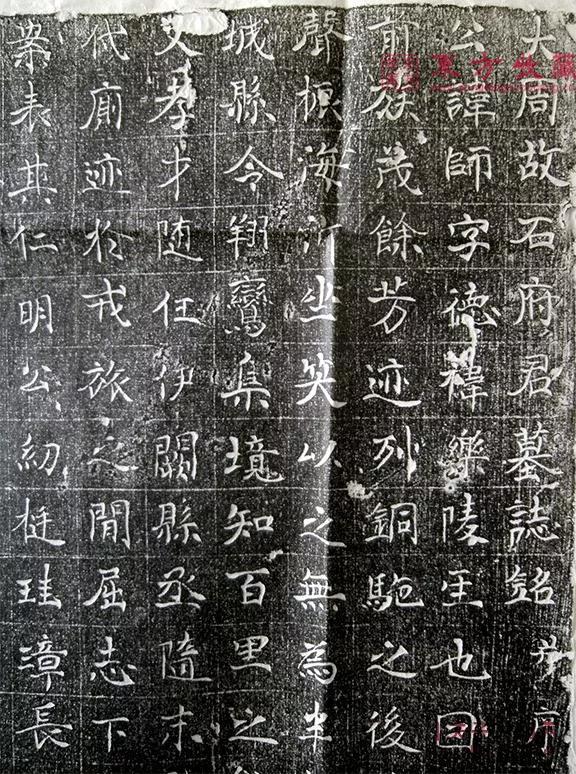 大周故石府君墓誌銘并序
公諱師字德禕樂陵𤯔也因
前族茂餘芳迹列銅駞之後
聲振海沂坐笑以之無為半
城縣令翔鸞集境知百里之
父孝才随任伊闕縣丞隨末
代廁迹於戎旅之閒屈志下
寀表其仁明公幼挺珪漳長